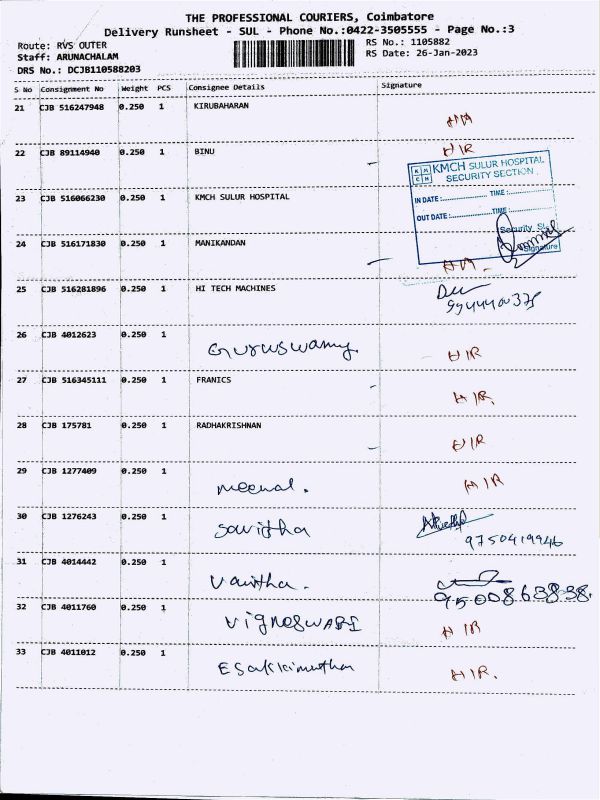 THE PROFESSIONAL COURIERS, Coimbatore
Delivery Runsheet - SUL - Phone No.:0422-3505555 - Page No.:3
Route: RVS OUTER
RS No.: 1105882
Staff: ARUNACHALAM
RS Date: 26-Jan-2023
DRS No.: DCJB110588203
S No Consignment No Weight PCS Consignee Details Signature
21 CJB 516247948 0.250 1 KIRUBAHARAN
22 CJB 89114940 0.250 1 BINU HIR
KMCH SULUR HOSPITAL
SECURITY SECTION
23 CJB 516066230 0.250 1 KMCH SULUR HOSPITAL
IN DATE :.............. TIME :..............
OUT DATE :.............. TIME :..............
Security
Signature
24 CJB 516171830 0.250 1 MANIKANDAN
25 CJB 516281896 0.250 1 HI TECH MACHINES
26 CJB 4012623 0.250 1 Guruswamy HIR
27 CJB 516345111 0.250 1 FRANICS HIR.
28 CJB 175781 0.250 1 RADHAKRISHNAN HIR
29 CJB 1277409 0.250 1 meenal. HIR
30 CJB 1276243 0.250 1 Savitha
9750419946
31 CJB 4014442 0.250 1 Vanitha.
9500863838.
32 CJB 4011760 0.250 1 VIGNESWARI HIR
33 CJB 4011012 0.250 1 Esakkimuthu HIR.